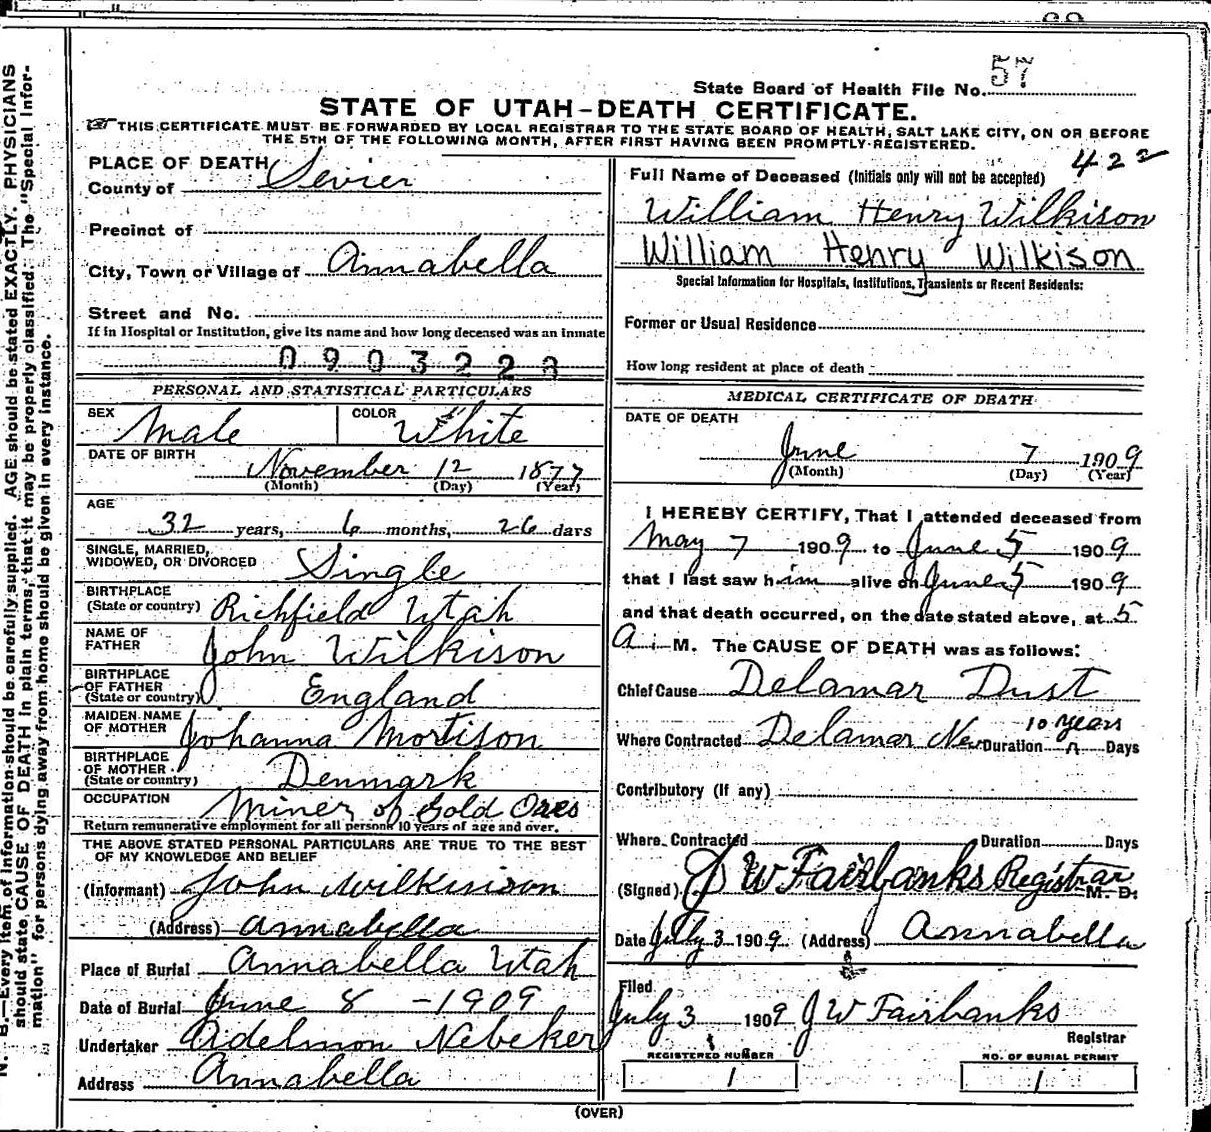 State Board of Health File No. 57
STATE OF UTAH-DEATH CERTIFICATE.
THIS CERTIFICATE MUST BE FORWARDED BY LOCAL REGISTRAR TO THE STATE BOARD OF HEALTH, SALT LAKE CITY, ON OR BEFORE
THE 5TH OF THE FOLLOWING MONTH, AFTER FIRST HAVING BEEN PROMPTLY REGISTERED.
PLACE OF DEATH
County of Sevier
Precinct of
City, Town or Village of Annabella
Street and No.
If in Hospital or Institution, give its name and how long deceased was an inmate
0903228
PERSONAL AND STATISTICAL PARTICULARS
SEX Male COLOR White
DATE OF BIRTH
November 12 1877
(Month) (Day) (Year)
AGE
32 years, 6 months, 26 days
SINGLE, MARRIED,
WIDOWED, OR DIVORCED Single
BIRTHPLACE
(State or country) Richfield Utah
NAME OF
FATHER John Wilkison
BIRTHPLACE
OF FATHER
(State or country) England
MAIDEN NAME
OF MOTHER Johanna Mortison
BIRTHPLACE
OF MOTHER
(State or country) Denmark
OCCUPATION Miner of Gold Ores
Return remunerative employment for all persons 10 years of age and over.
THE ABOVE STATED PERSONAL PARTICULARS ARE TRUE TO THE BEST
OF MY KNOWLEDGE AND BELIEF
(Informant) John Wilkinison
(Address) Annabella
Place of Burial Annabella Utah
Date of Burial June 8 -1909
Undertaker Aidelmon Nebeker
Address Annabella
422
Full Name of Deceased (Initials only will not be accepted)
William Henry Wilkison
William Henry Wilkison
Special Information for Hospitals, Institutions, Transients or Recent Residents:
Former or Usual Residence
How long resident at place of death
MEDICAL CERTIFICATE OF DEATH
DATE OF DEATH
June 7 1909
(Month) (Day) (Year)
I HEREBY CERTIFY, That I attended deceased from
May 7 1909 to June 5 1909
that I last saw him alive on June 5 1909
and that death occurred, on the date stated above, at 5
A. M. The CAUSE OF DEATH was as follows:
Chief Cause Delamar Dust
10 years
Where Contracted Delamar Nev Duration Days
Contributory (If any)
Where Contracted Duration Days
(Signed) J W Fairbanks Registrar M. D.
Date July 3 1909 (Address) Annabella
Filed
July 3 1909 J W Fairbanks
Registrar
REGISTERED NUMBER NO. OF BURIAL PERMIT
1 1
(OVER)
N. B.—Every item of information should be carefully supplied. AGE should be stated EXACTLY. PHYSICIANS
should state CAUSE OF DEATH in plain terms, that it may be properly classified. The "Special Infor-
mation" for persons dying away from home should be given in every instance.